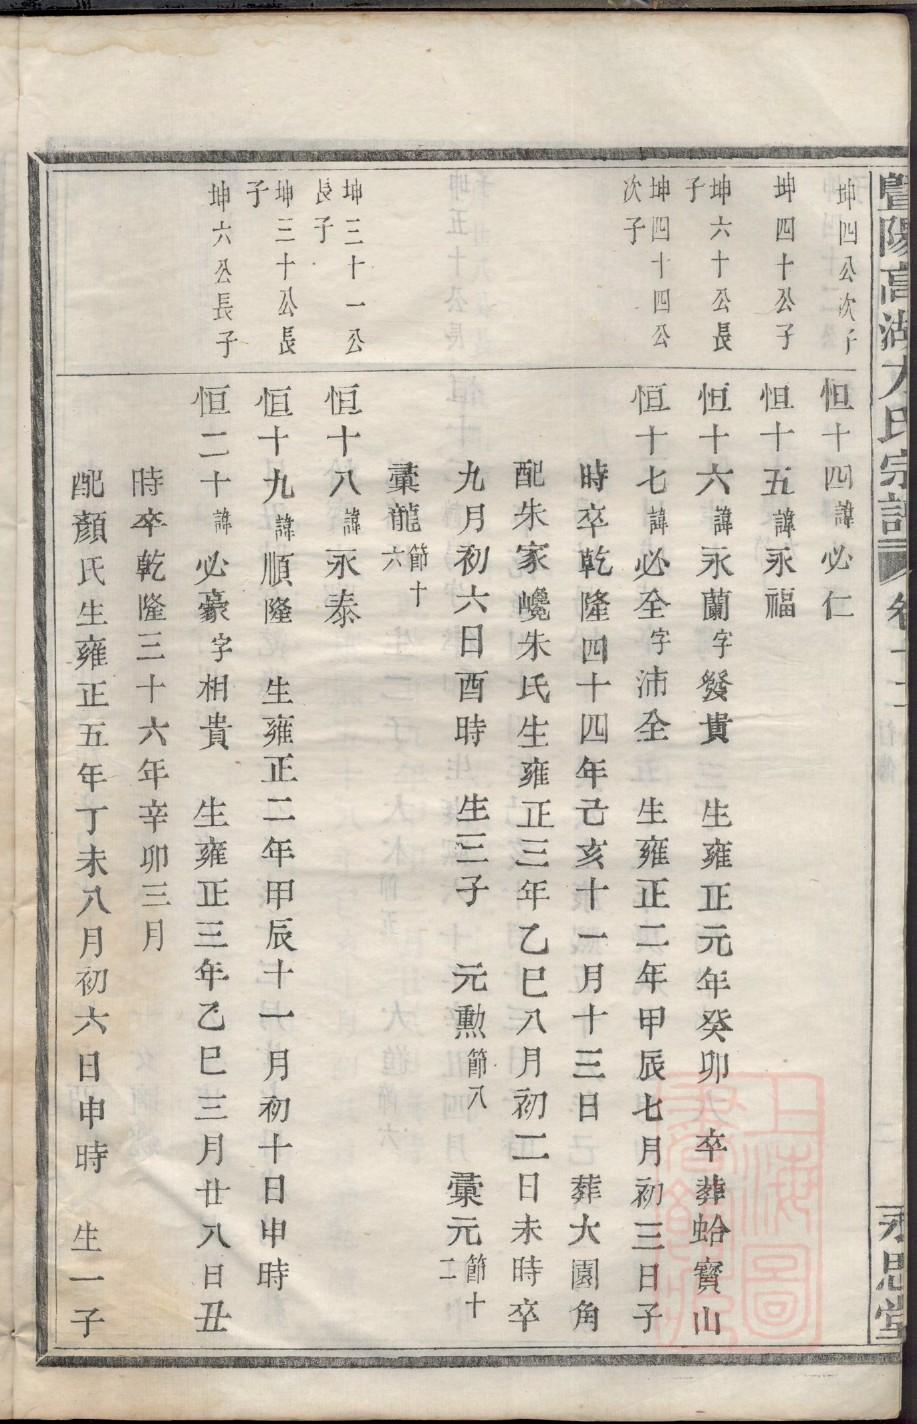 暨陽高湖方氏宗譜
永思堂
坤四公次子
恒十四諱必仁
坤四十公子
恒十五諱永福
坤六十公長子
恒十六諱永蘭字發貴 生雍正元年癸卯 卒葬蛤寶山
坤四十四公次子
恒十七諱必全字沛全 生雍正二年甲辰七月初三日子
時卒乾隆四十四年己亥十一月十三日 葬大園角
配朱家巉朱氏生雍正三年乙巳八月初二日未時卒
九月初六日酉時 生三子 元勲節八 彙元節十二
彙龍節十六
坤三十一公長子
恒十八諱永泰
坤三十公長子
恒十九諱順隆 生雍正二年甲辰十一月初十日申時
坤六公長子
恒二十諱必豪字相貴 生雍正三年乙巳三月廿八日丑
時卒乾隆三十六年辛卯三月
配顏氏生雍正五年丁未八月初六日申時 生一子
上海圖